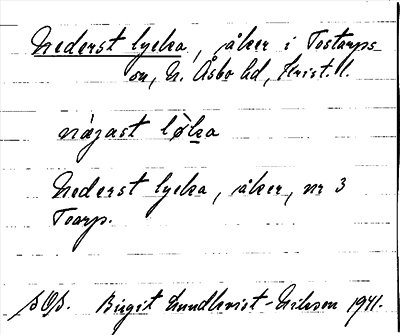 Nederst lycka, åker i Tostarps
sn, N. Åsbo hd, Krist. l.
nàzast lỳka
Nederst lycka, åker, nr 3
Toarp.
Birgit Lundkvist-Nilsson 1941.